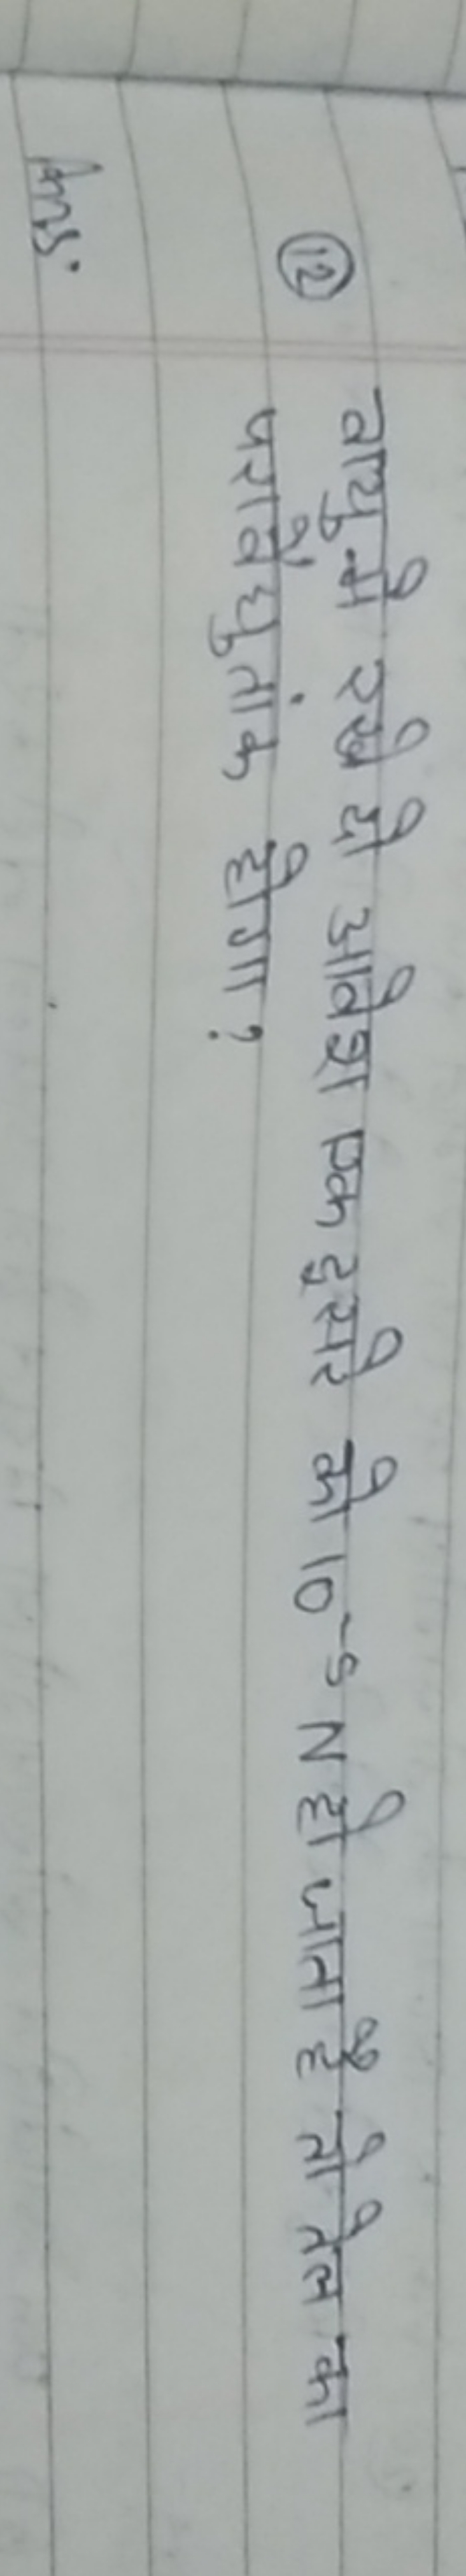 ⑫ वायु में रखे दो आवेश एक दुसरे को 10⁻⁵ N हो जाता है तो तेल का
परावैधुतांक होगा?
Ans.